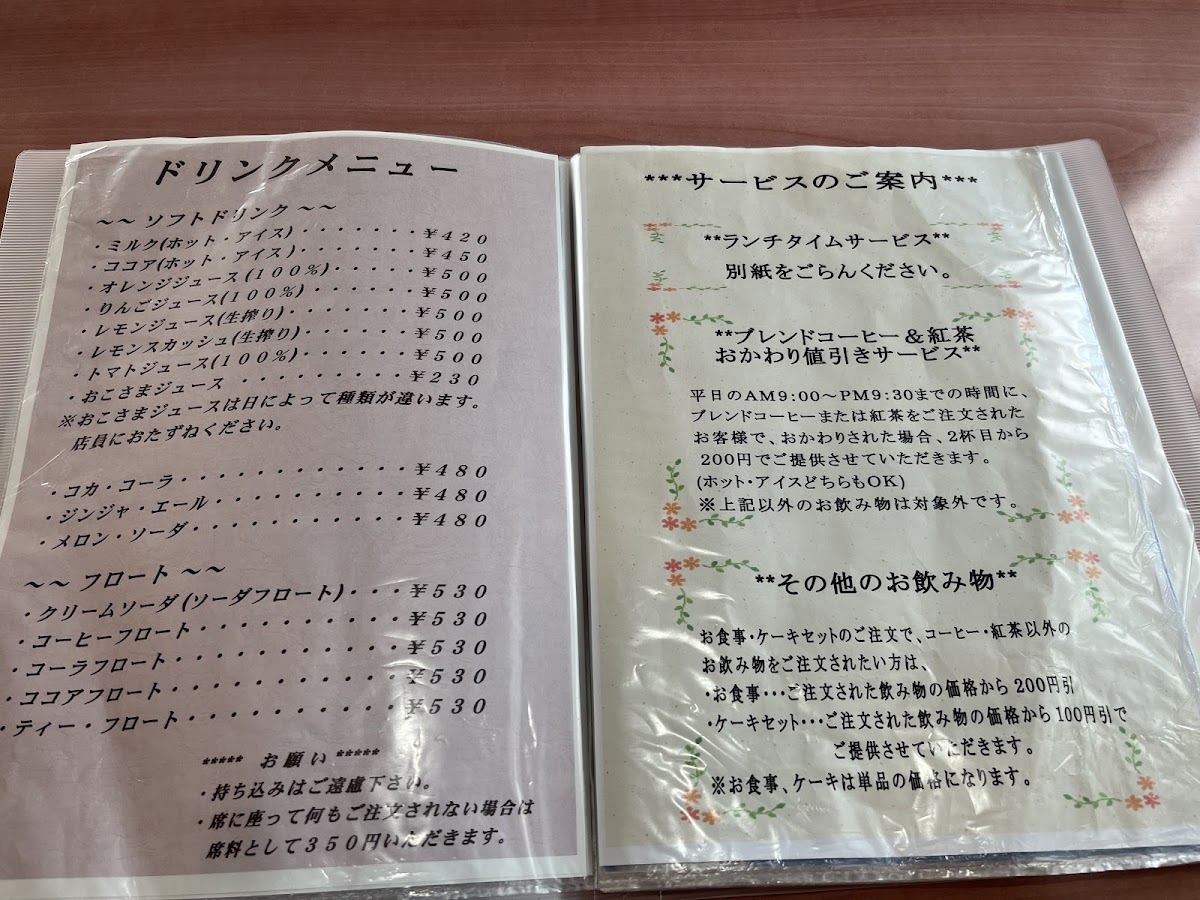 ドリンクメニュー
～～ ソフトドリンク ～～
・ミルク(ホット・アイス)・・・・・・・¥420
・ココア(ホット・アイス)・・・・・・・¥450
・オレンジジュース(100%)・・・・・¥500
・りんごジュース(100%)・・・・・・¥500
・レモンジュース(生搾り)・・・・・・・¥500
・レモンスカッシュ(生搾り)・・・・・・¥500
・トマトジュース(100%)・・・・・・¥500
・おこさまジュース ・・・・・・・・・¥230
※おこさまジュースは日によって種類が違います。
店員におたずねください。
・コカ・コーラ・・・・・・・・・・・¥480
・ジンジャ・エール・・・・・・・・・¥480
・メロン・ソーダ・・・・・・・・・・¥480
～～ フロート ～～
・クリームソーダ(ソーダフロート)・・・¥530
・コーヒーフロート・・・・・・・・・・¥530
・コーラフロート・・・・・・・・・・・¥530
・ココアフロート・・・・・・・・・・・¥530
・ティー・フロート・・・・・・・・・・¥530
***** お願い *****
・持ち込みはご遠慮下さい。
・席に座って何もご注文されない場合は
席料として350円いただきます。
***サービスのご案内***
**ランチタイムサービス**
別紙をごらんください。
**ブレンドコーヒー＆紅茶
おかわり値引きサービス**
平日のAM9:00～PM9:30までの時間に、
ブレンドコーヒーまたは紅茶をご注文された
お客様で、おかわりされた場合、2杯目から
200円でご提供させていただきます。
(ホット・アイスどちらもOK)
※上記以外のお飲み物は対象外です。
**その他のお飲み物**
お食事・ケーキセットのご注文で、コーヒー・紅茶以外の
お飲み物をご注文されたい方は、
・お食事・・・ご注文された飲み物の価格から200円引
・ケーキセット・・・ご注文された飲み物の価格から100円引で
ご提供させていただきます。
※お食事、ケーキは単品の価格になります。